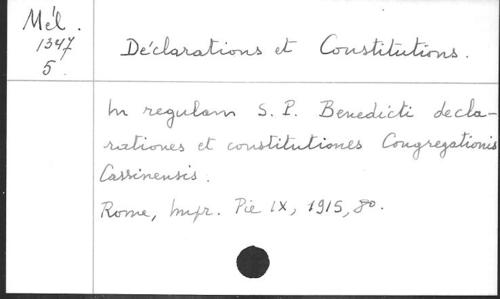 Mél.
1347
5.
Déclarations et Constitutions.
In regulam S. P. Benedicti decla-
rationes et constitutiones Congregationis
Cassinensis.
Rome, Impr. Pie IX, 1915, 8o.